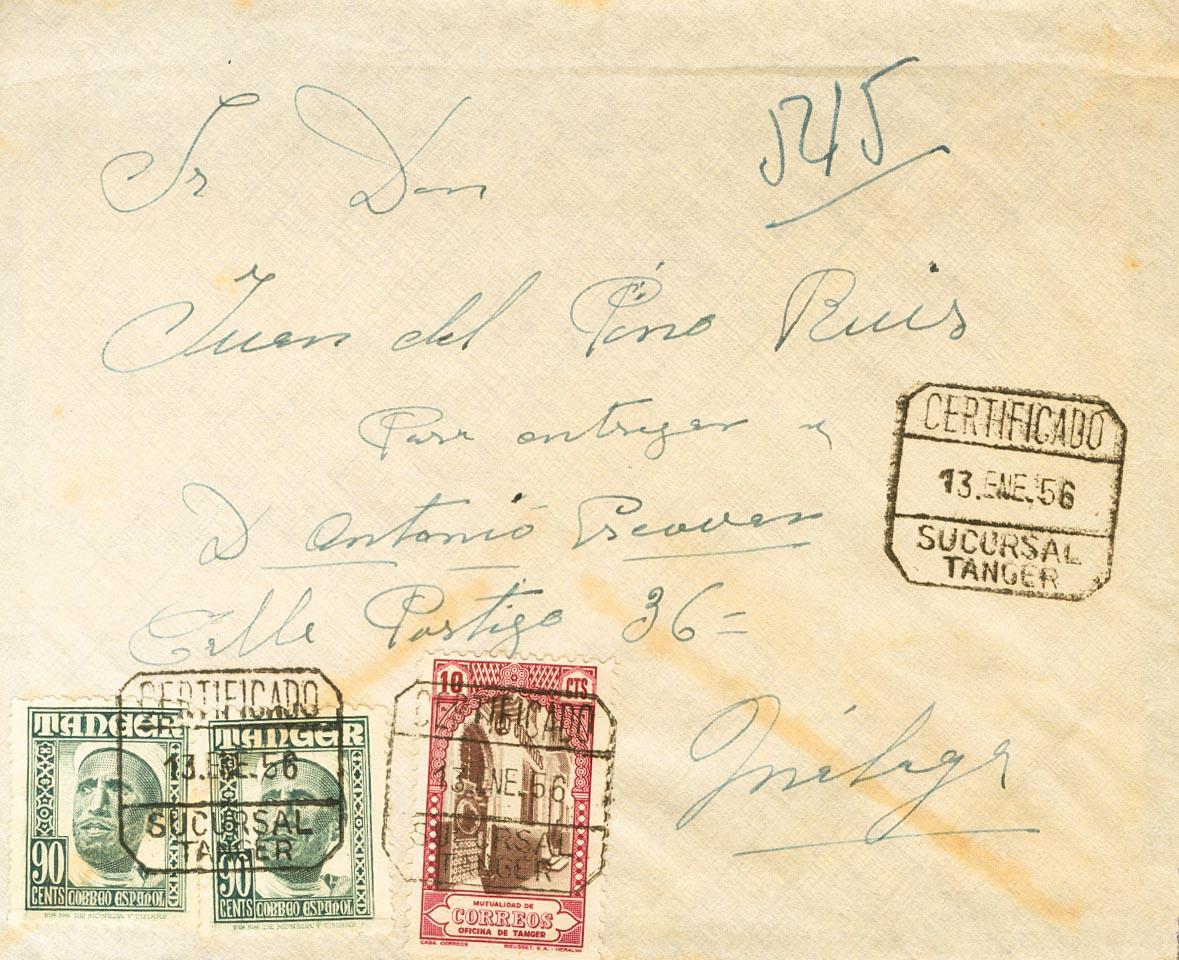 545
Sr Don
Juan del Pino Ruis
Para entregar a
D Antonio Escovar
Calle Postigo 36=
Málaga
CERTIFICADO
13.ENE.56
SUCURSAL
TANGER
CERTIFICADO
13.ENE.56
SUCURSAL
TANGER
TANGER
90
CENTS
CORREO ESPAÑOL
TANGER
90
CENTS
CORREO ESPAÑOL
CERTIFICADO
13.ENE.56
SUCURSAL
TANGER
10 CTS
MUTUALIDAD DE
CORREOS
OFICINA DE TANGER
CASA CORREOS RIEUSSET, S.A.